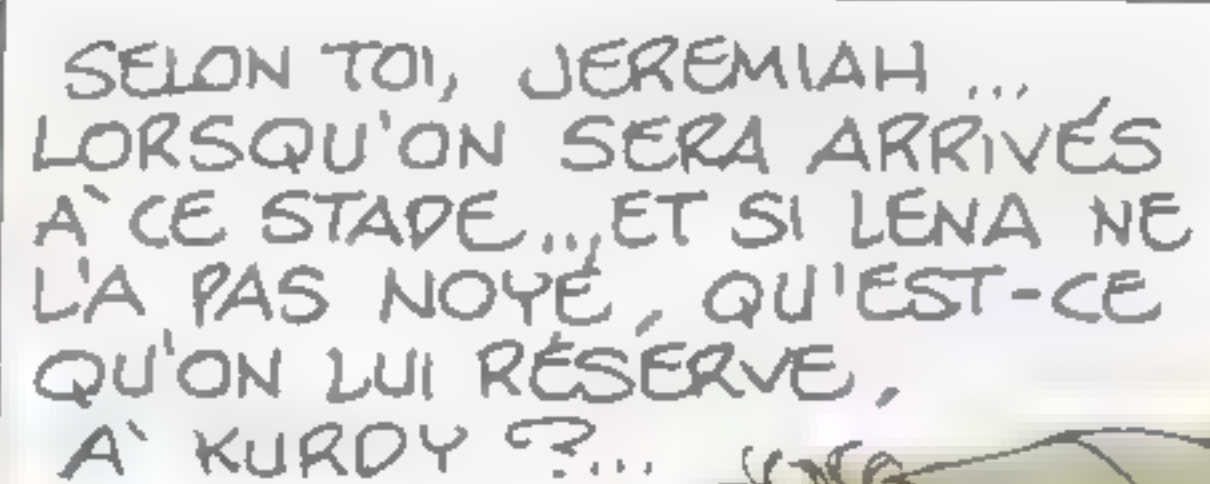 SELON TOI, JEREMIAH...
LORSQU'ON SERA ARRIVÉS
À CE STADE... ET SI LENA NE
L'A PAS NOYÉ, QU'EST-CE
QU'ON LUI RÉSERVE,
À KURDY ?...